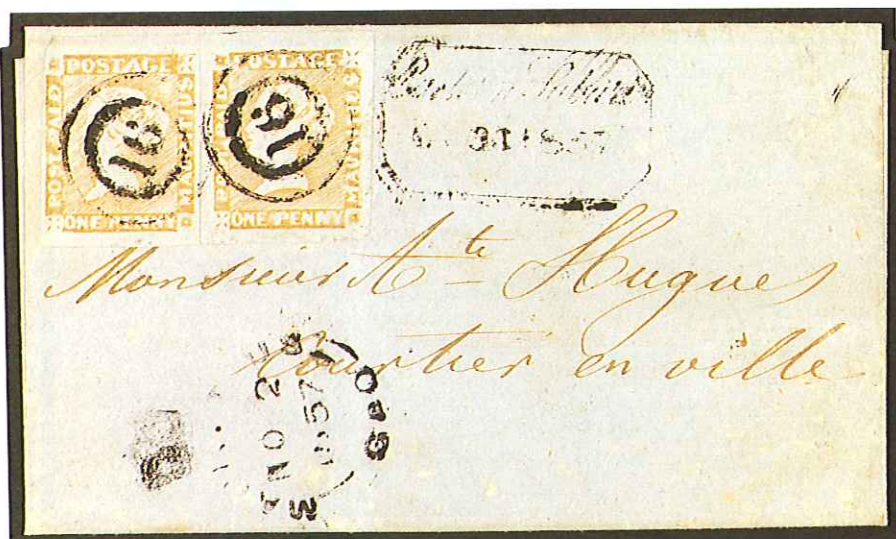 POSTAGE
POST PAID
MAURITIUS
ONE PENNY
16
POSTAGE
PAID
MAURITIUS
ONE PENNY
16
Monsieur Ate Hugues
Courtier en ville
1857
GPO